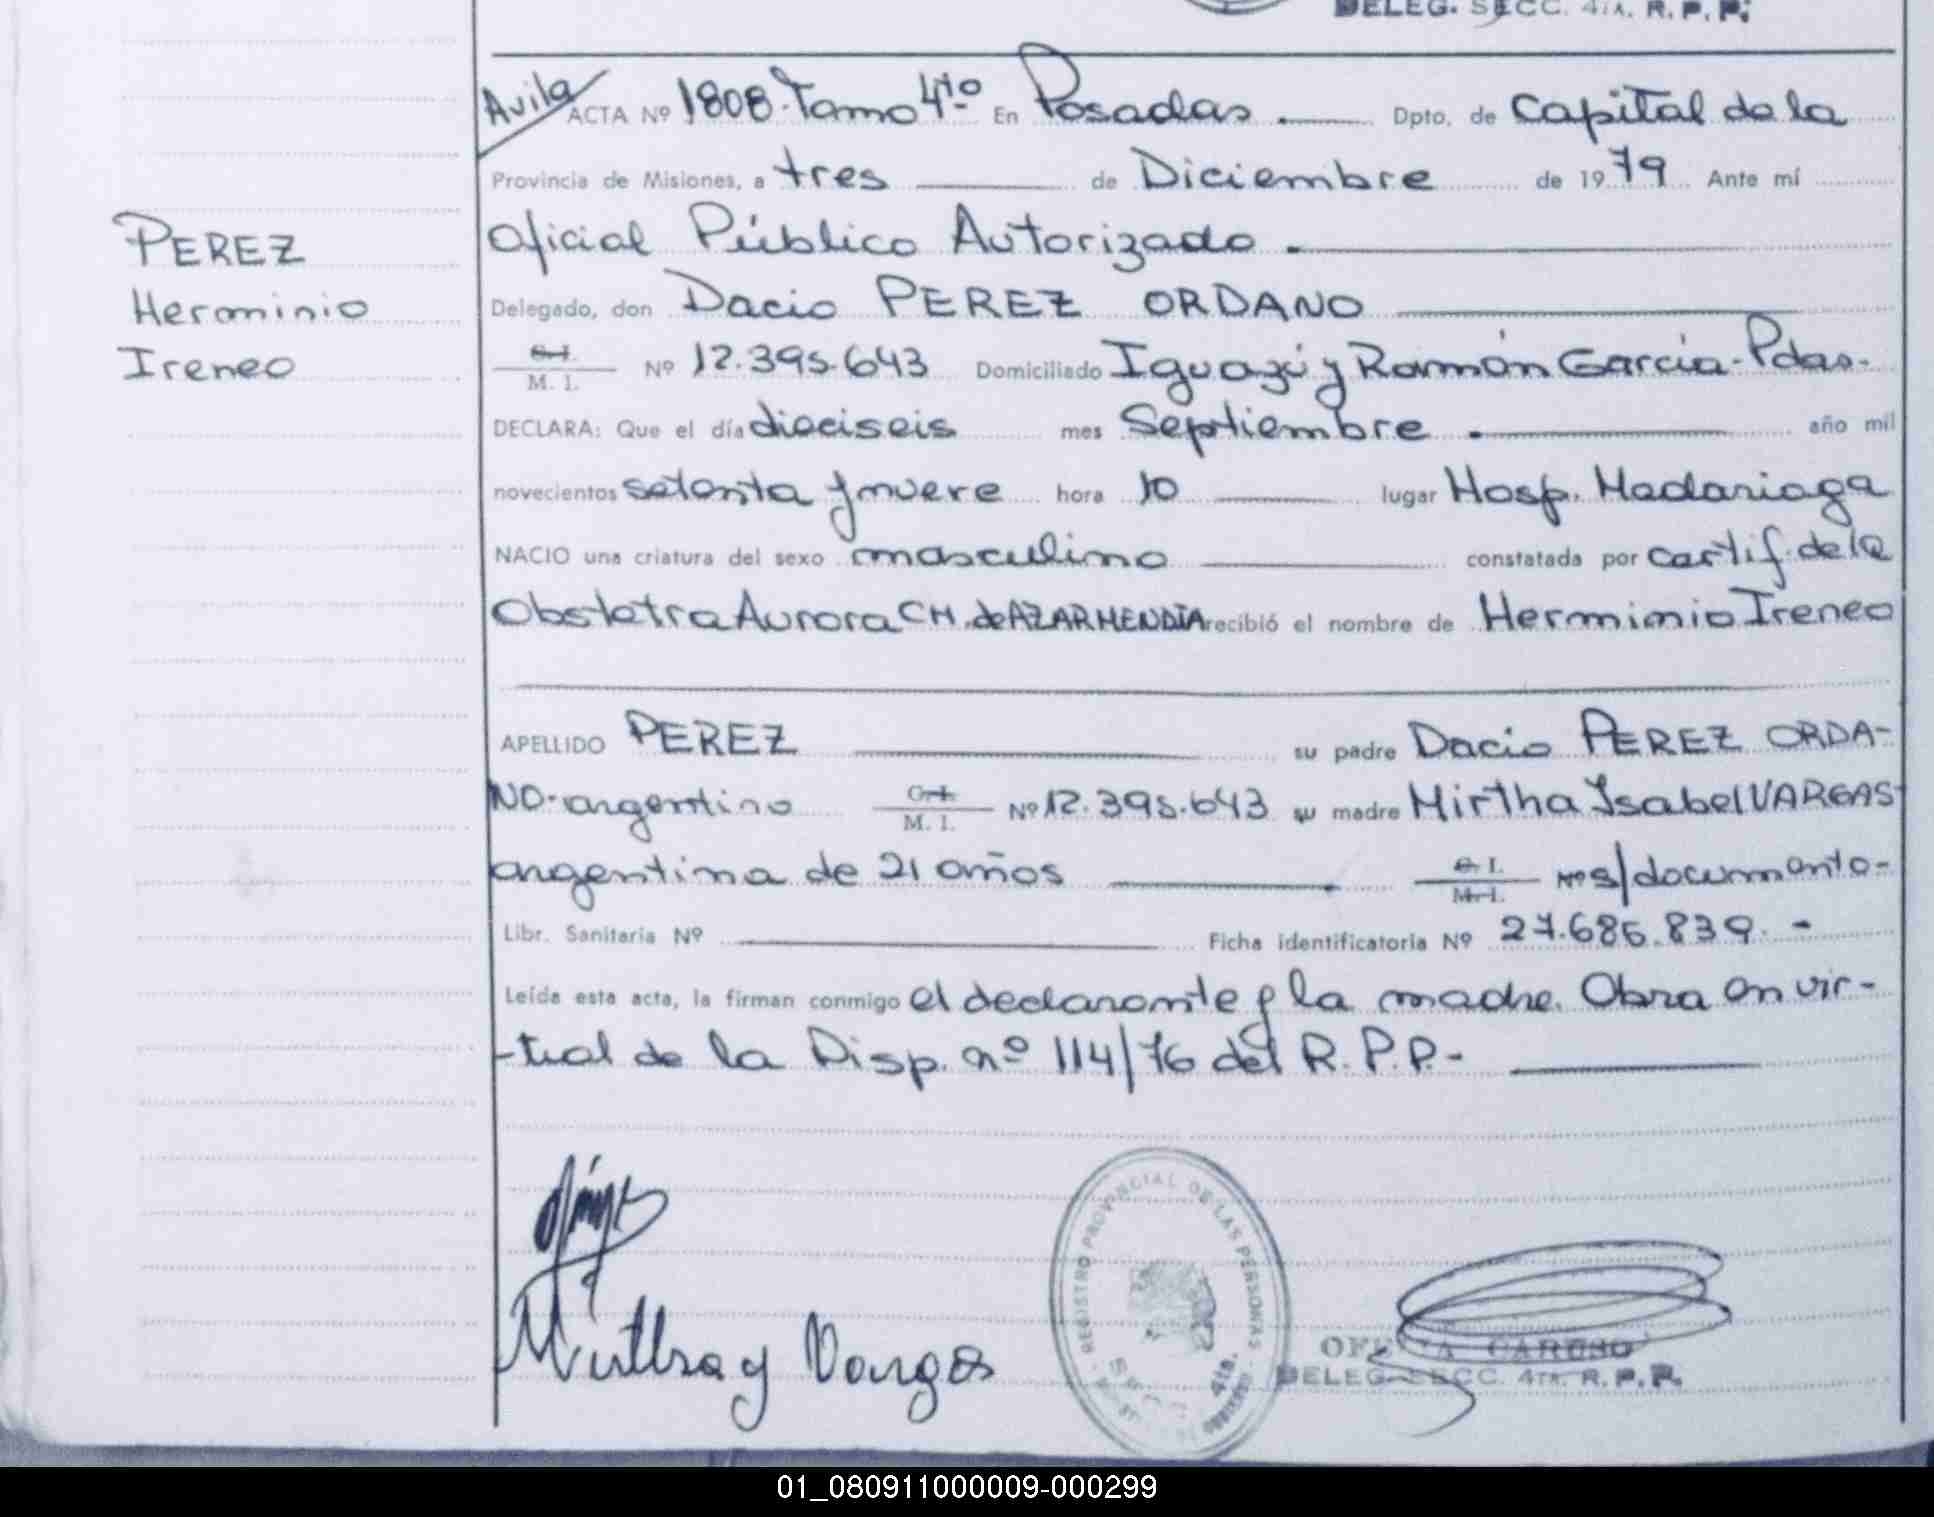 DELEG. SECC. 4TA. R. P. P.
Avila ACTA Nº 1808 - Tomo 4to En Posadas. Dpto. de Capital de la
Provincia de Misiones, a tres de Diciembre de 1979 Ante mí
Oficial Público Autorizado.
Delegado, don Dacio PEREZ ORDANO
C. I.
M. I. Nº 12.395.643 Domiciliado Iguazú y Ramón García - Pdas.
DECLARA: Que el día dieciseis mes Septiembre. año mil
novecientos setenta y nueve hora 10 lugar Hosp. Madariaga
NACIO una criatura del sexo masculino constatada por certif. de la
Obstetra Aurora CH. de AZARMENDIA recibió el nombre de Herminio Ireneo
APELLIDO PEREZ su padre Dacio PEREZ ORDA-
NO - argentino C. I.
M. I. Nº 12.395.643 su madre Mirtha Isabel VARGAS
argentina de 21 años C. I.
M. I. Nº s/documento -
Libr. Sanitaria Nº Ficha identificatoria Nº 27.686.839. -
Leída esta acta, la firman conmigo el declarante y la madre. Obra en vir-
-tud de la Disp. nº 114/76 del R. P. P. -
PEREZ
Herminio
Ireneo
Mirtha y Vargas
REGISTRO PROVINCIAL DE LAS PERSONAS
4ta.
CARUSO
DELEG. SECC. 4TA. R. P. P.
01_080911000009-000299